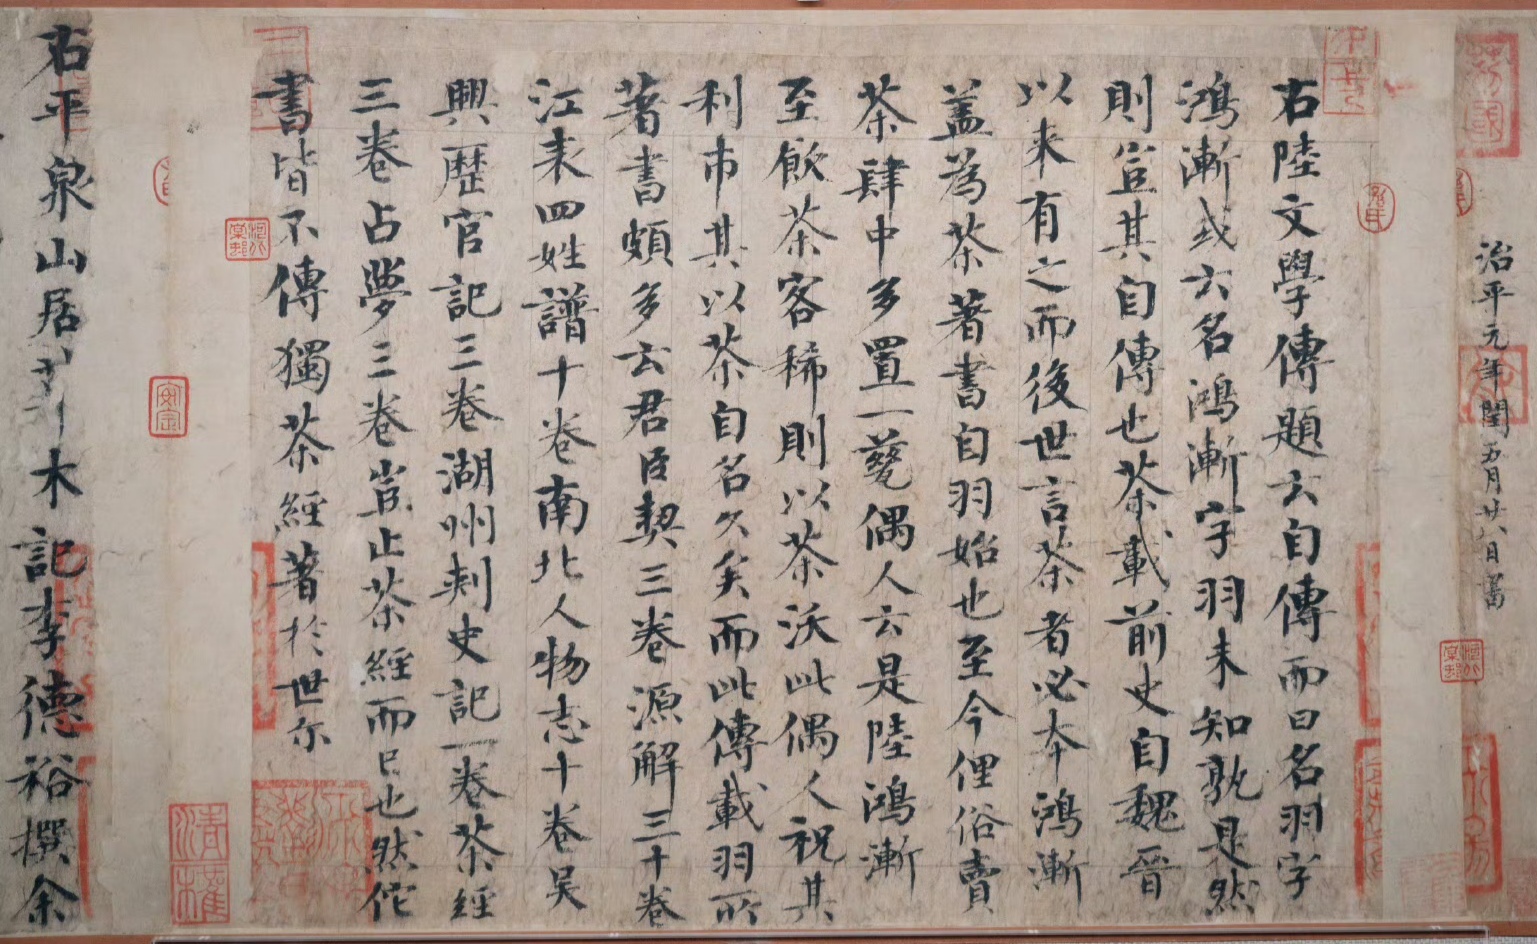 治平元年閏五月廿八日書
右陸文學傳題云自傳而曰名羽字
鴻漸或云名鴻漸字羽未知孰是然
則豈其自傳也茶載前史自魏晉
以来有之而後世言茶者必本鴻漸
蓋為茶著書自羽始也至今俚俗賣
茶肆中多置一甆偶人云是陸鴻漸
至飲茶客稀則以茶沃此偶人祝其
利市其以茶自名久矣而此傳載羽所
著書頗多云君臣契三卷源解三十卷
江表四姓譜十卷南北人物志十卷吳
興歷官記三卷湖州刺史記一卷茶經
三卷占夢三卷豈止茶經而已也然佗
書皆不傳獨茶經著於世尔
右平泉山居草木記李德裕撰余